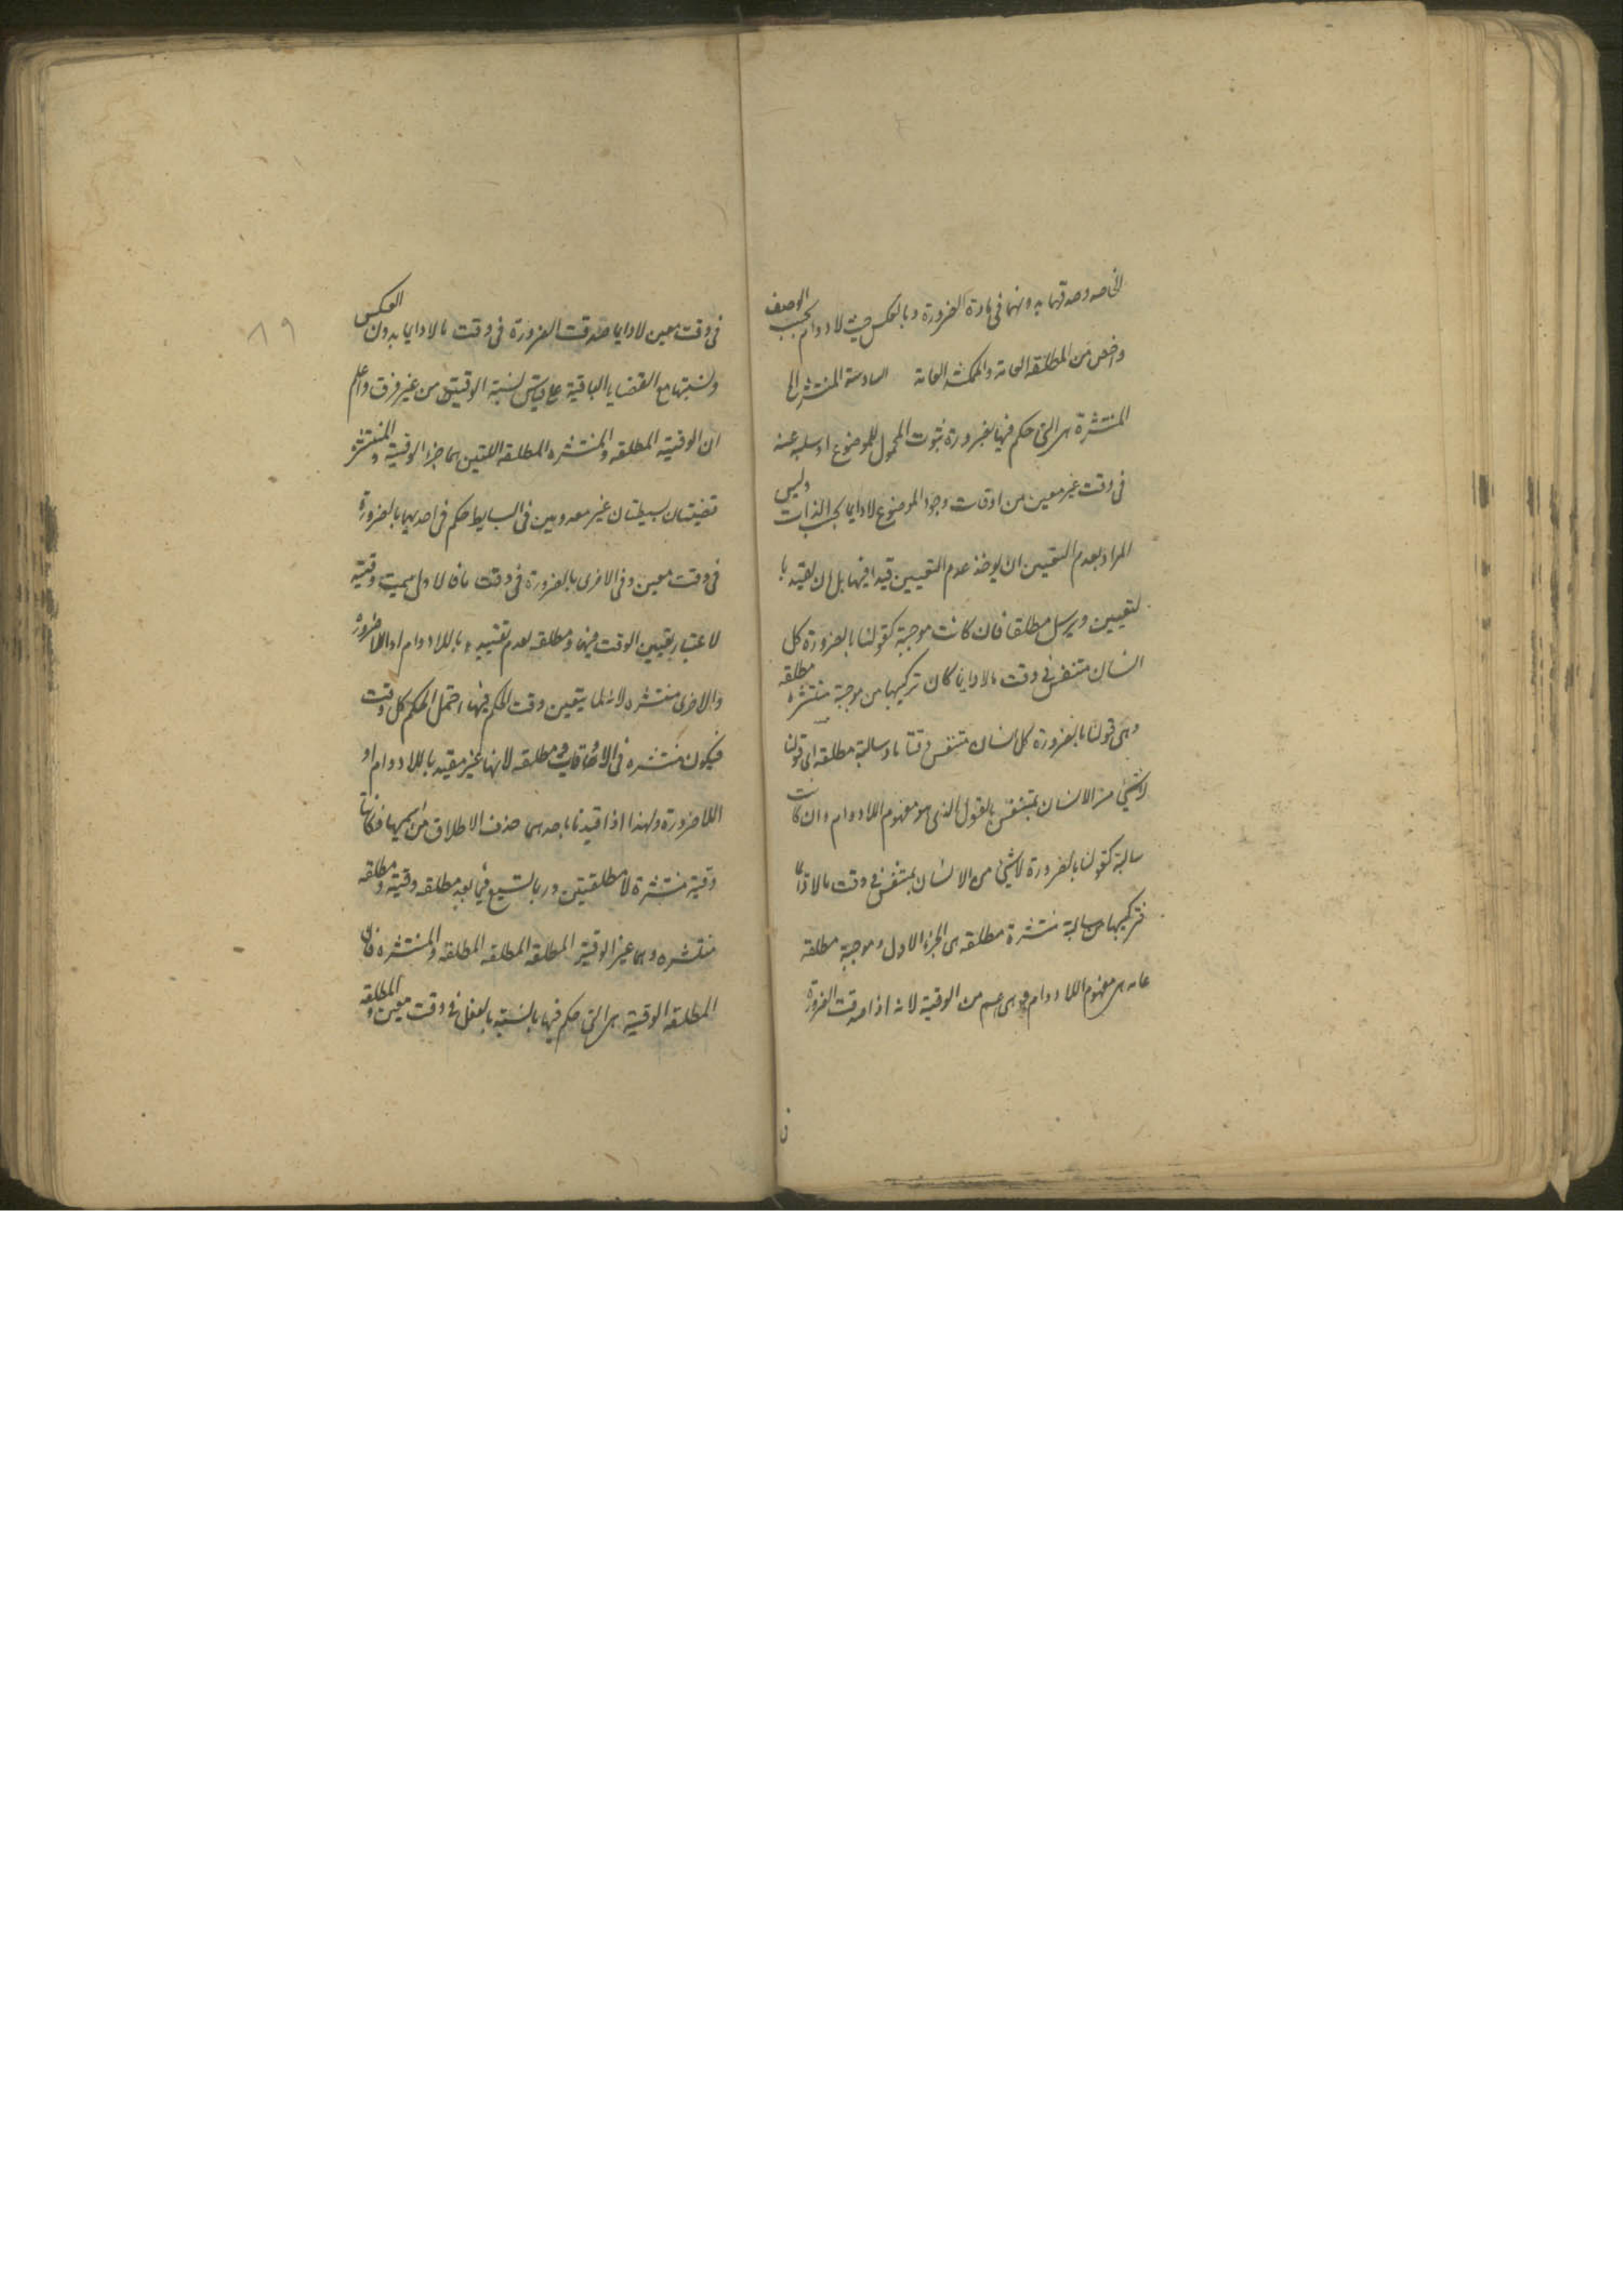 الخاصه وصدقهما بدونها فى مادة الضرورة وبالعكس حيث لا دوام بحسب الوصف
واخص من المطلقه العامة والممكنة العامة السادسة المنتشرة
المنتشرة هى التى حكم فيها بضرورة ثبوت المحمول للموضوع او سلبه عنه
فى وقت غير معين من اوقات وجود الموضوع لا دايما بحسب الذات وليس
المراد بعدم التعيين ان يوخذ عدم التعيين قيدا فيها بل ان لا يقيد با
لتعيين ويرسل مطلقا فان كانت موجبة كقولنا بالضرورة كل
انسان متنفس فى وقت ما لا دايما كان تركيبها من موجبة منتشره مطلقه
وهى قولنا بالضرورة كل انسان متنفس وقتا ما وسالبة مطلقه اى قولنا
لا شئ من الانسان بمتنفس بالفعل الذى هو مفهوم اللا دوام وان كانت
سالبة كقولنا بالضرورة لا شئ من الانسان بمتنفس فى وقت ما لا دائما
فتركيبها من سالبة منتشرة مطلقه هى الجزء الاول وموجبة مطلقة
عامه هى مفهوم اللا دوام وهى اعم من الوقتية لانه اذا صدقت الضرورة
ن
٨٩
فى وقت معين لا دايما صدقت الضرورة فى وقت ما لا دايما بدون العكس
ونسبتها مع القضايا الباقية على قياس نسبة الوقتية من غير فرق واعلم
ان الوقتية المطلقه والمنتشره المطلقه اللتين هما جزءا الوقتية والمنتشرة
قضيتان بسيطتان غير معدودتين فى البسايط حكم فى احديهما بالضرورة
فى وقت معين وفى الاخرى بالضرورة فى وقت ما فالاولى سميت وقتية
لاعتبار تعيين الوقت فيها ومطلقه لعدم تقييده باللا دوام او اللا ضرورة
والاخرى منتشره لانه لما يتعين وقت الحكم فيها احتمل الحكم كل وقت
فيكون منتشره فى الاوقات ومطلقه لانها غير مقيد باللا دوام او
اللا ضرورة ولهذا اذا قيدتا باحدهما حذف الاطلاق من اسميهما فكانتا
وقتية منتشرة لا مطلقتين وربما تسمع فيما بعد مطلقه وقتية ومطلقه
منتشره وهما غير الوقتية المطلقه المطلقه المطلقه والمنتشره فان
المطلقه الوقتية هى التى حكم فيها بالنسبة بالفعل فى وقت معين والمطلقه